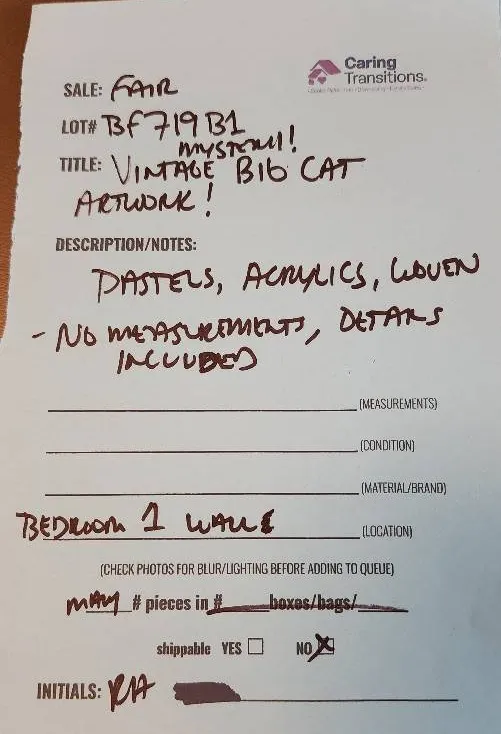 Caring
Transitions.
SALE: FAIR
LOT# BF719B1
MYSTERY!
TITLE: VINTAGE BIG CAT
ARTWORK!
DESCRIPTION/NOTES:
PASTELS, ACRYLICS, WOVEN
- NO MEASUREMENTS, DETAILS
INCLUDED
(MEASUREMENTS)
(CONDITION)
(MATERIAL/BRAND)
BEDROOM 1 WALLS (LOCATION)
(CHECK PHOTOS FOR BLUR/LIGHTING BEFORE ADDING TO QUEUE)
MANY # pieces in # boxes/bags/
shippable YES NO
INITIALS: RA